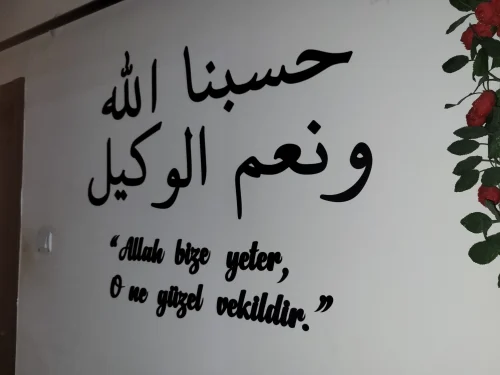 حسبنا الله
ونعم الوكيل
“Allah bize yeter,
O ne güzel vekildir.”